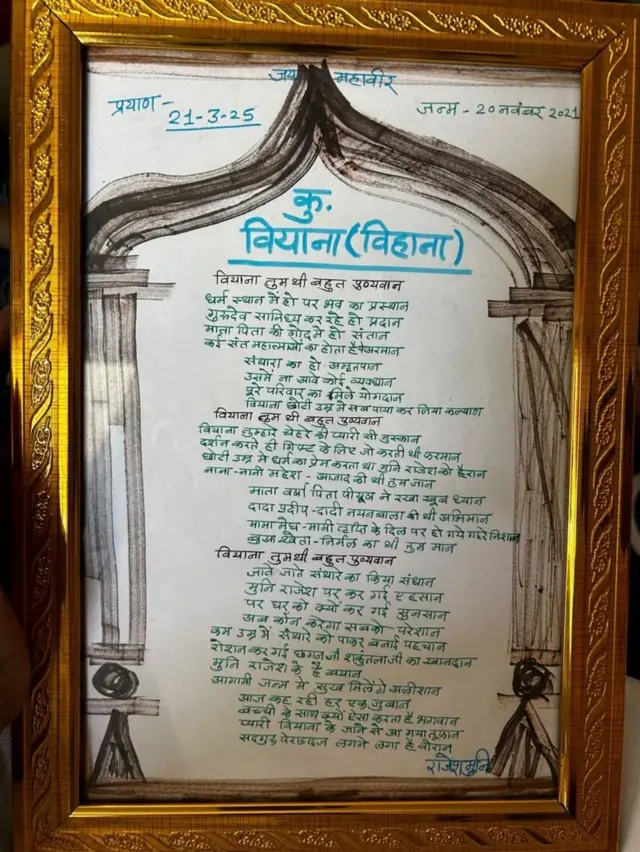 जय महावीर
प्रयाण -
21-3-25
जन्म - 20 नवंबर 2021
कु.
वियाना (विहाना)
वियाना तुम थी बहुत पुण्यवान
धर्म स्थान में हो पर भव का प्रस्थान
गुरुदेव सानिध्य कर रहे हो प्रदान
माता पिता की गोद मे हो संतान
कई संत महात्माओं का होता है अरमान
संथारा का हो अमृतपान
उसमें ना आवे कोई व्यवधान
पूरे परिवार का मिले योगदान
वियाना छोटी उम्र में सब पाया कर लिया कल्याण
वियाना तुम थी बहुत पुण्यवान
वियाना तुम्हारे चेहरे की प्यारी सी मुस्कान
दर्शन करते ही गिफ्ट के लिए जो करती थी फरमान
छोटी उम्र मे धर्म का प्रेम करता था मुनि राजेश को हैरान
नाना-नानी महेश - आजाद की थी तुम जान
माता वर्षा पिता पीयूष ने रखा खूब ध्यान
दादा प्रदीप - दादी नयनबाला की थी अभिमान
मामा मेघ - मामी तृप्ति के दिल पर हो गये गहरे निशान
बुआ श्वेता - निर्मल का थी तुम मान
वियाना तुम थी बहुत पुण्यवान
जाते जाते संथारे का किया संधान
मुनि राजेश पर कर गई एहसान
पर घर को क्यों कर गई सुनसान
अब कौन करेगा सबको परेशान
कम उम्र में संथारे को पाकर बनाई पहचान
रोशन कर गई छगन जी शकुंतला जी का खानदान
मुनि राजेश के है बयान
आगामी जन्म मे सुख मिलेंगे अलीशान
आज कह रही हर एक जुबान
बच्ची के साथ क्यों ऐसा करता है भगवान
प्यारी वियाना के जाने से आ गया तूफान
सदगुरु पेराडाइज लगने लगा है वीरान
राजेश मुनि